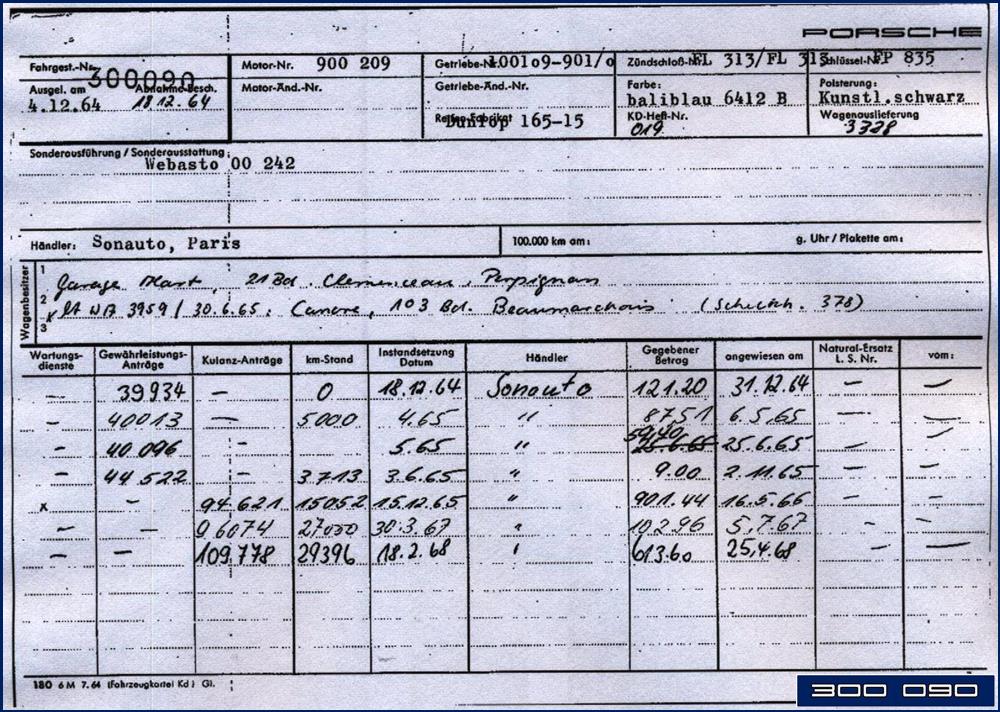 PORSCHE
Fahrgest.-Nr. 300090
Motor-Nr. 900 209
Getriebe-Nr. 100109-901/0
Zündschloß-Nr. FL 313/FL 313
Schlüssel-Nr. FP 835
Ausgel. am 4.12.64
Abnahme-Besch. 18 12. 64
Motor-Änd.-Nr.
Getriebe-Änd.-Nr.
Farbe: baliblau 6412 B
Polsterung: Kunstl.schwarz
Reifen-Fabrikat Dunlop 165-15
KD-Heft-Nr. 019
Wagenauslieferung 3328
Sonderausführung / Sonderausstattung: Webasto 00 242
Händler: Sonauto, Paris
100.000 km am:
g. Uhr / Plakette am:
Wagenbesitzer
1 Garage Mart, 21 Bd. Clemenceau, Perpignan
2 x lt WA 3959 / 30.6.65: Canore, 103 Bd. Beaumarchais (Scheckh. 378)
3
Wartungsdienste Gewährleistungs-Anträge Kulanz-Anträge km-Stand Instandsetzung Datum Händler Gegebener Betrag angewiesen am Natural-Ersatz L. S. Nr. vom:
— 39934 — 0 18.12.64 Sonauto 121.20 31.12.64 — —
- 40013 — 5000 4.65 " 87.51 6.5.65 — —
- 40 096 - 5.65 " 59,40 25.6.65 25.6.65 - —
- 44 522 - 3713 3.6.65 " 9.00 2.11.65 — —
x - 94 621 15052 15.12.65 " 901.44 16.5.66 — -
— — 96074 27000 30.3.67 " 102.96 5.7.67 - -
— — 109.778 29396 18.2.68 " 613.60 25,4.68 — —
180 6 M 7.64 (Fahrzeugkartei Kd) Gl.
300 090